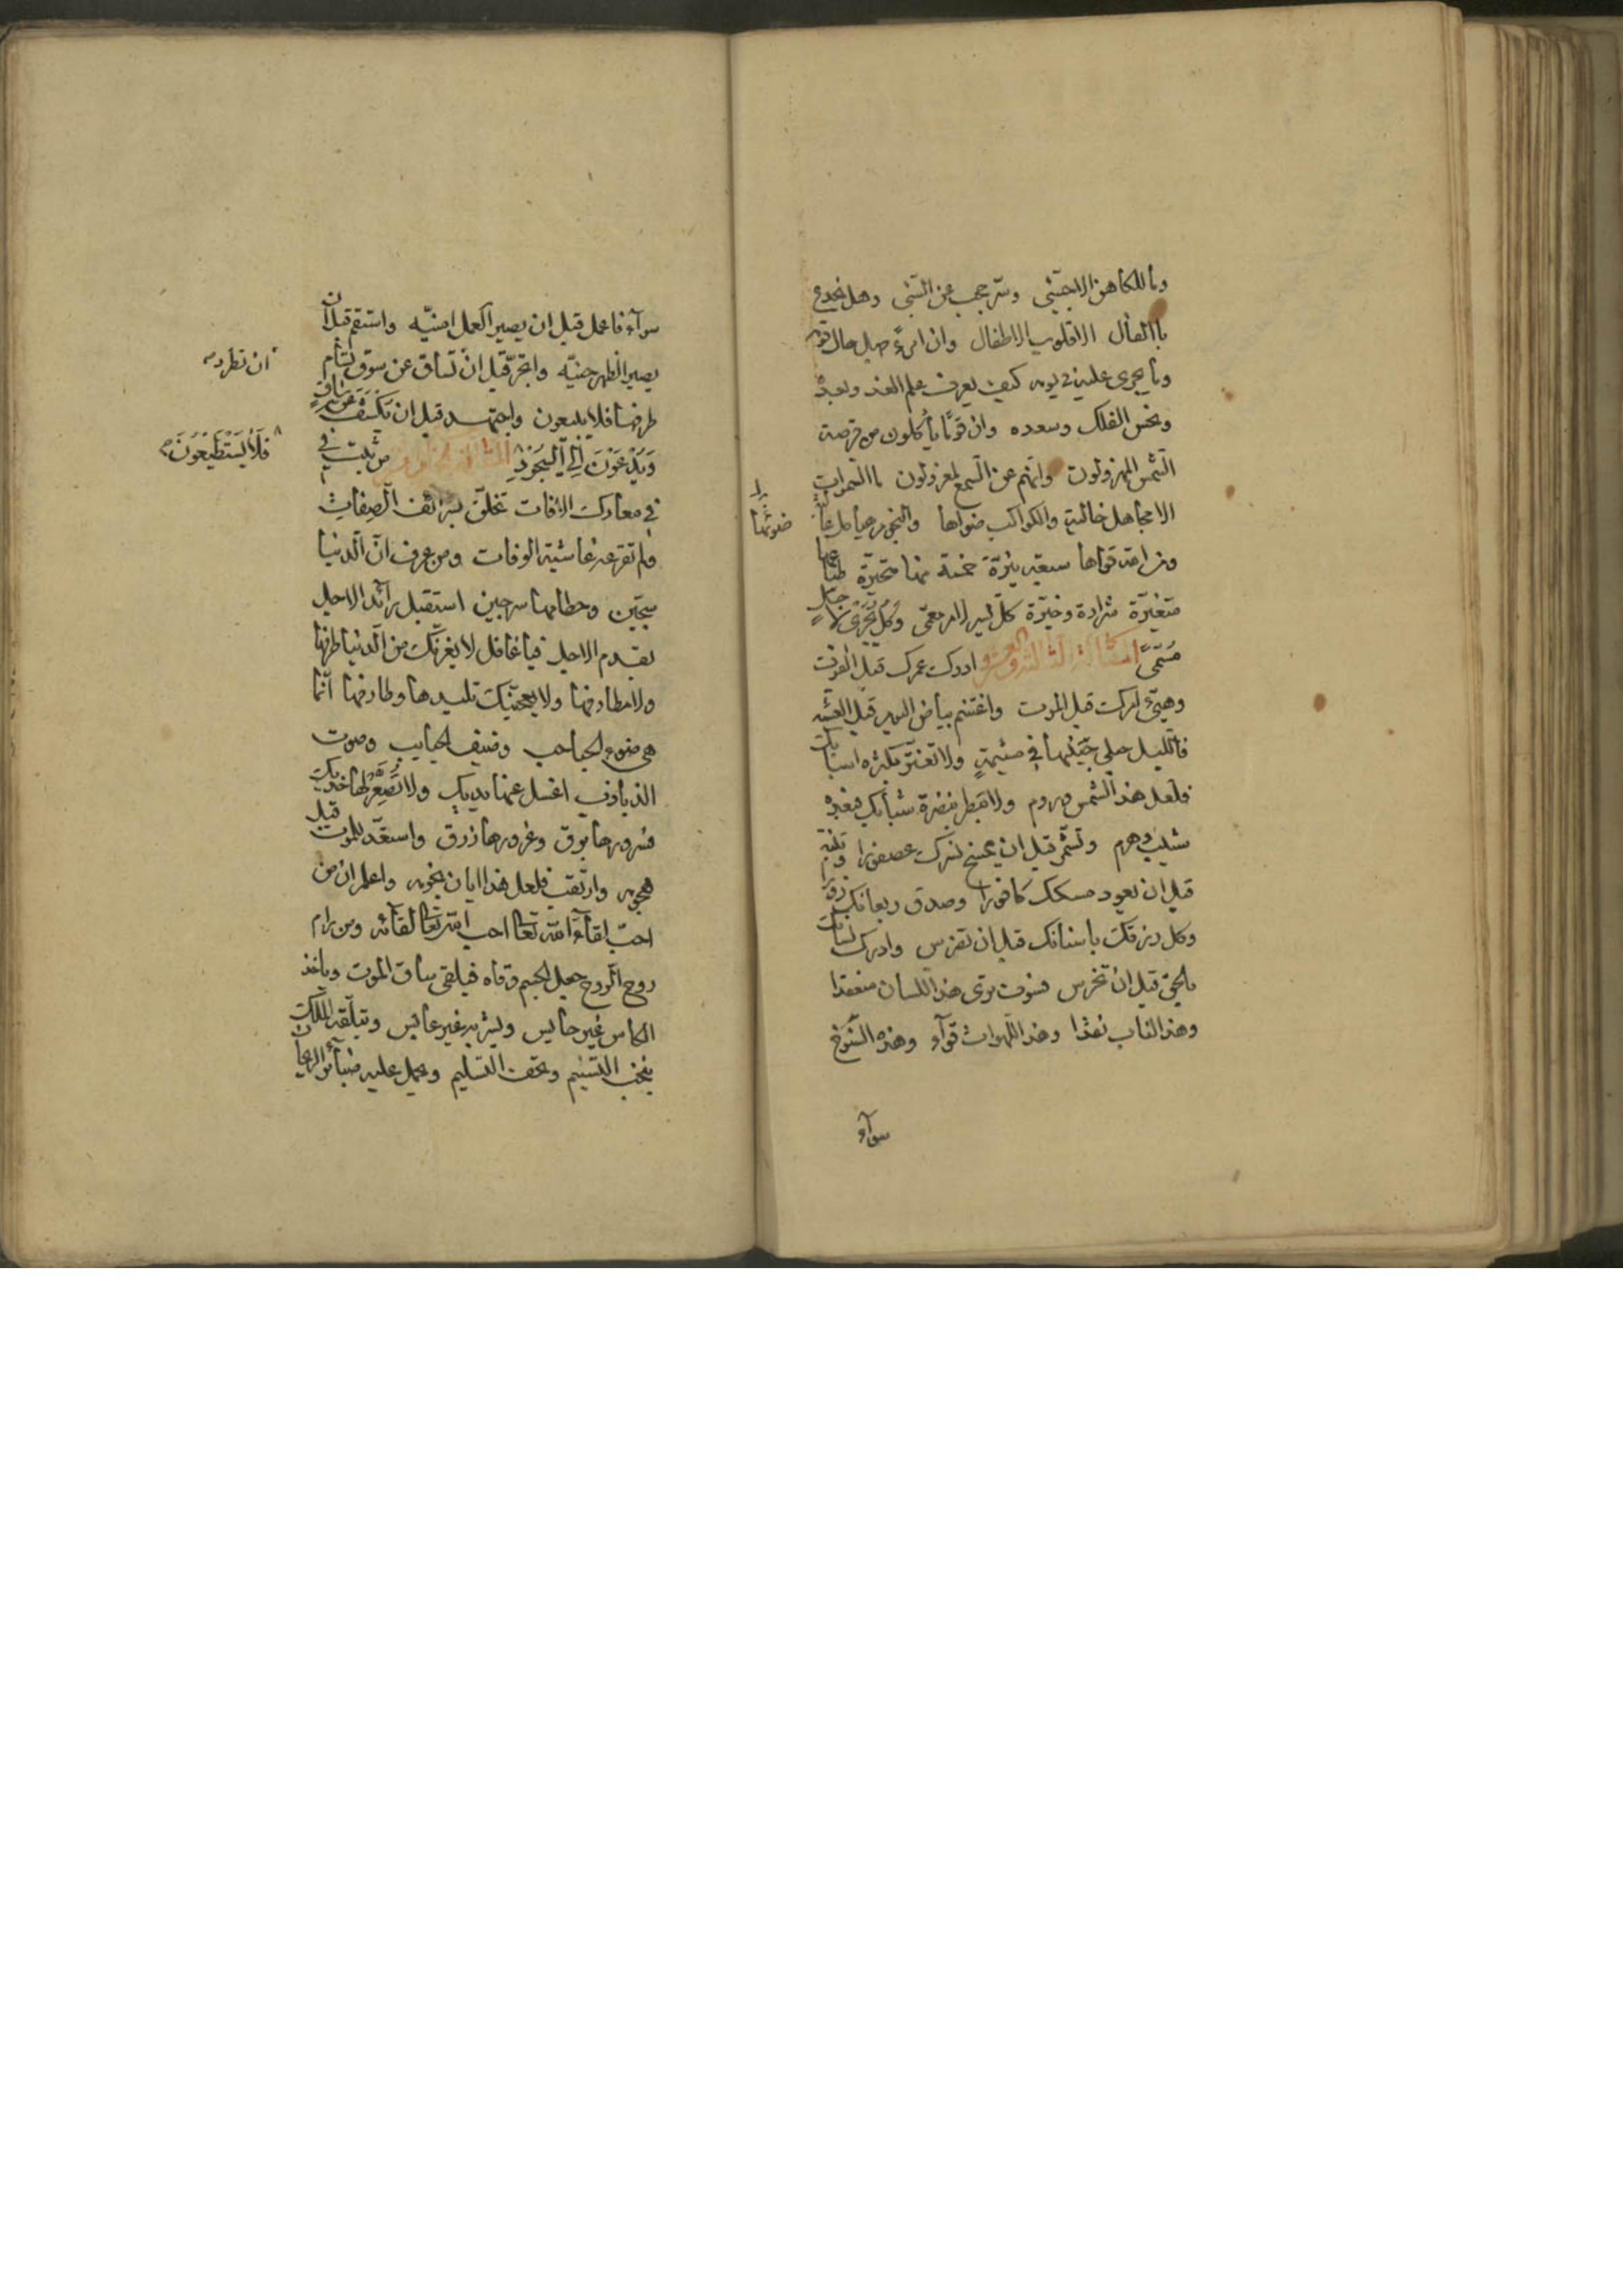 وما للكاهن الا جبتى وسر حجب عن النبى وهل يخدع
بالفال الا قلوب الاطفال وان امرءً جهل حال قومه
وما يجرى عليه فى يومه كيف يعرف علم الغد وبعده
ونحس الفلك وسعده وان قومًا يأكلون من قرصة
الشمس لمهزولون وانهم عن السمع لمعزولون ما السموات
الا مجاهل خالية والكواكب صواها والنجوم هياكل عالية
ضوئها
ومن الله قواها سبعة نيرة خمسة منها متحيرة طباعها
متغيرة شرارة وخيرة كل يسير لامر معمى وَكُلٌّ يَجْرِى لِاَجَلٍ
مُسَمًّى المقالة الثالثة والعشرون ادرك عمرك قبل الفوت
وهيّئ امرك قبل الموت واغتنم بياض اليوم قبل العشية
فالليل حبلى جنينها فى مشيمة ولا تغتر بكثرة اسبابك
فلعل هذا الشمس وروم ولا تبطر بنضرة شبابك فبعده
شيب وهرم وتشمر قبل ان يمسخ نسرك عصفورا وتنبه
قبل ان يعود مسكك كافورا وصدق ريعانك زوره
وكل رزقك باسنانك قبل ان تضرس وادرك لسانك
بالحق قبل ان تخرس فسوف ترى هذا اللسان منعقدا
وهذا الناب نقدا وهذا اللهوات قوآء وهذه الشيوخ
سوآء
سوآء فاعمل قبل ان يصير اكمل امنيّه واستقم قبل ان
يصير الظهر حنيّه واتجر قبل ان تساق عن سوق تشام
ان تطرد
طرفها فلا يبيعون واجتهد قبل ان يُكْشَفَ عَنْ سَاقٍ
وَيُدْعَوْنَ اِلَى السُّجُودِ المقالة من ثبت
فَلَا يَسْتَطِيعُونَ
فى معارك الآفات تخلق بشرائف الصفات
ولم تقرعه غاشية الوفات ومن عرف انّ الدنيا
سجين وحطامها سرجين استقبل رآئد الاجل
بقدم الاجل فيا غافل لا يغرنك من الدنيا طرفها
ولا مطارفها ولا يعجبنك تليدها وطارفها انّما
هى ضوء الحباحب وضيف الحبايب وصوت
الذبادب اغسل عنها يديك ولا تُصَعِّرْ لها خديك
فسرورها بوق وغرورها زرق واستعد للموت قبل
هجومه وارتقب فلعل هذا ابان نجومه واعلم ان من
احبّ لقاء الله تعا احب الله تعا لقائه ومن رام
روح الروح جعل الجسم وقاه فيلقى ساق الموت وياخذ
الكاس غير حايس ويشربه غير عابس ويتلقه الملك
بنخب التسنيم وتحف التسليم ويحمل عليه ضبآئر الريحان